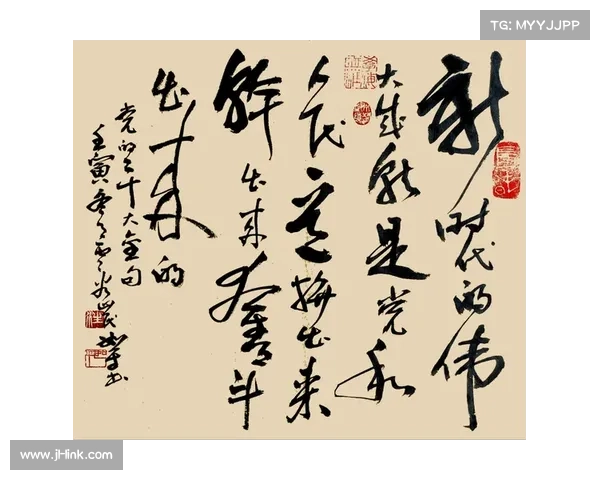 TG: MYYJJPP
新时代的伟
大成就是党和
人民一道拼出来
幹出来奮斗
出来的
党的二十大金句
壬寅冬月
www.jHink.com